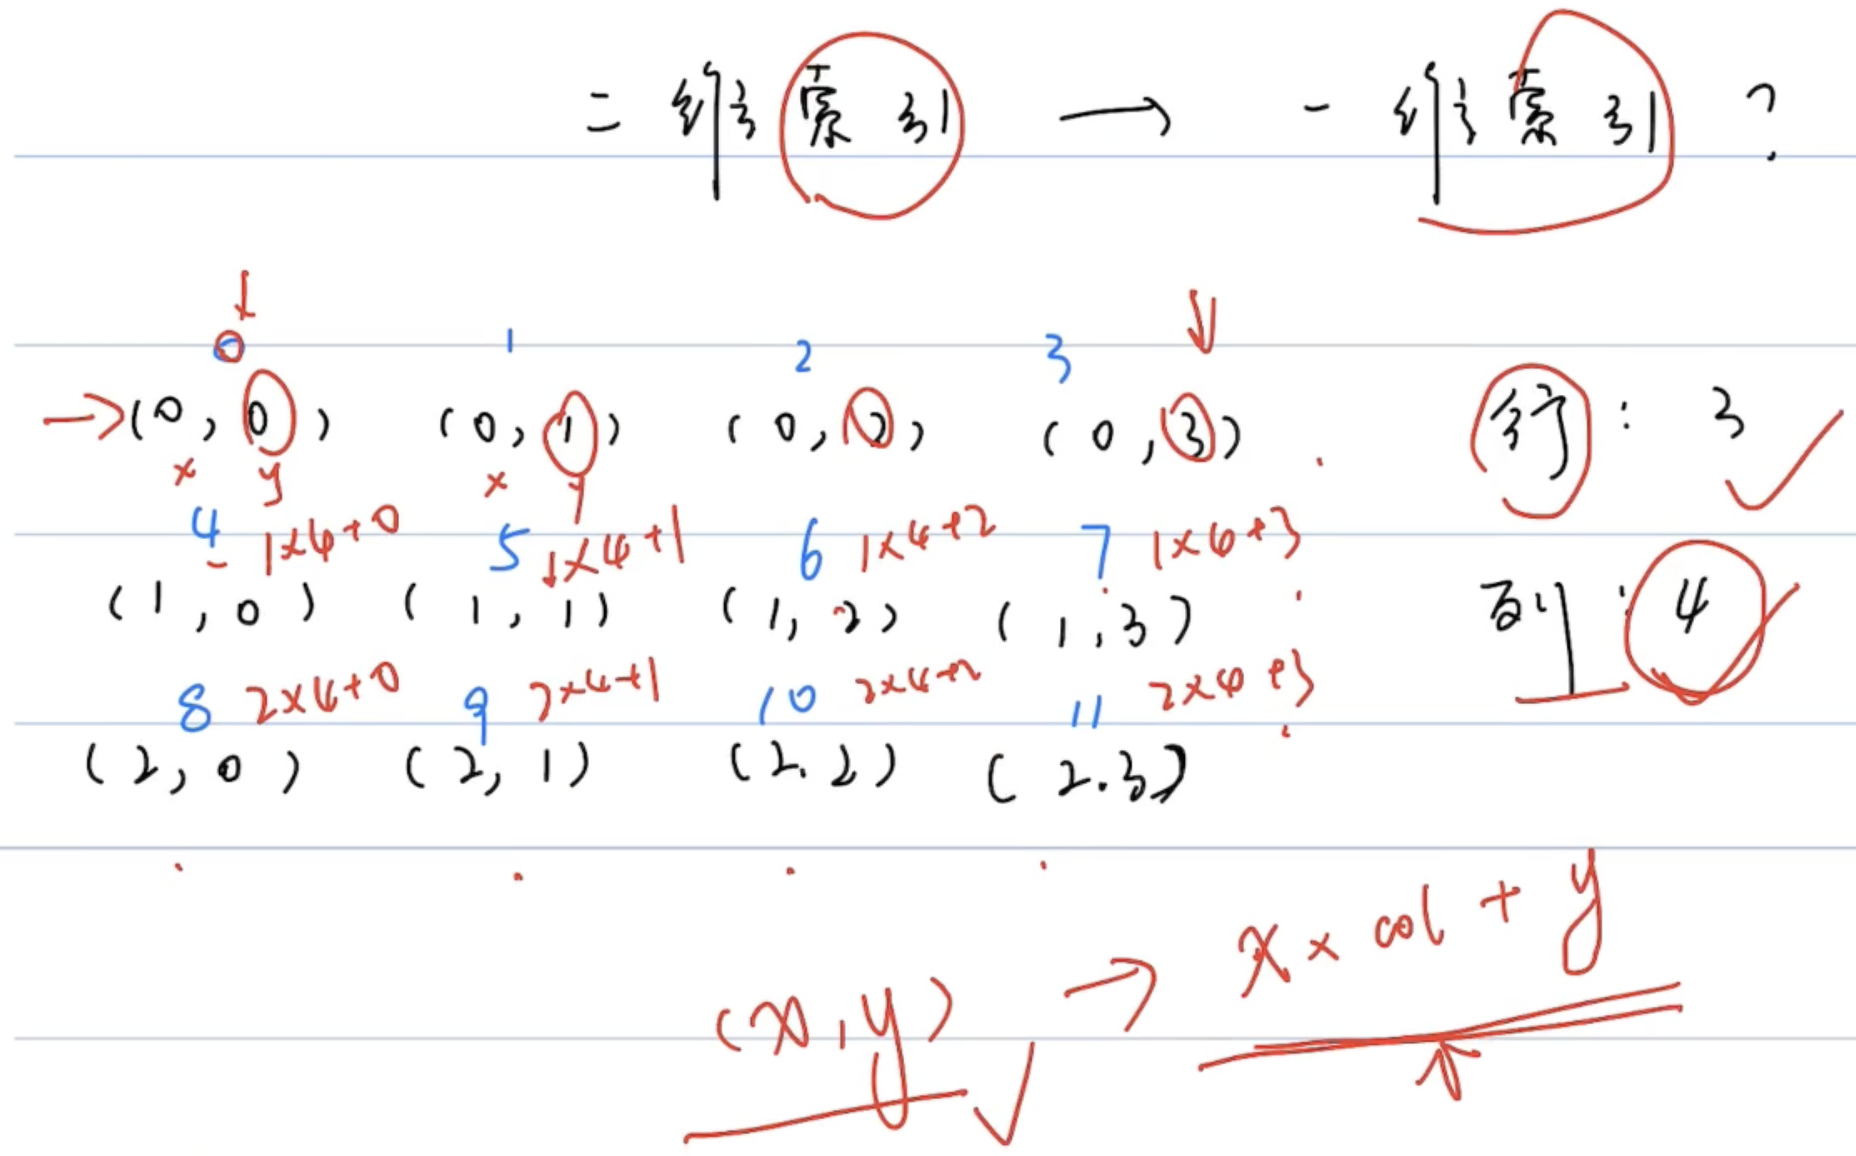 二维索引 → 一维索引?
0 1 2 3
→(0, 0) (0, 1) (0, 2) (0, 3) 行: 3
x y x y
4 1×4+0 5 1×4+1 6 1×4+2 7 1×4+3
(1, 0) (1, 1) (1, 2) (1, 3) 列: 4
8 2×4+0 9 2×4+1 10 2×4+2 11 2×4+3
(2, 0) (2, 1) (2.2) (2.3)
(x, y) → x × col + y